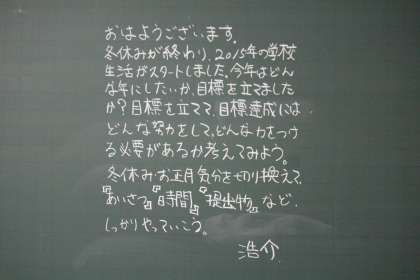 おはようございます。
冬休みが終わり、2015年の学校
生活がスタートしました。今年はどん
な年にしたいか、目標を立てました
か?目標を立てて、目標達成には
どんな努力をして、どんな力をつけ
る必要があるか考えてみよう。
冬休み・お正月気分を切り換えて、
『あいさつ』『時間』『提出物』など、
しっかりやっていこう。
浩介